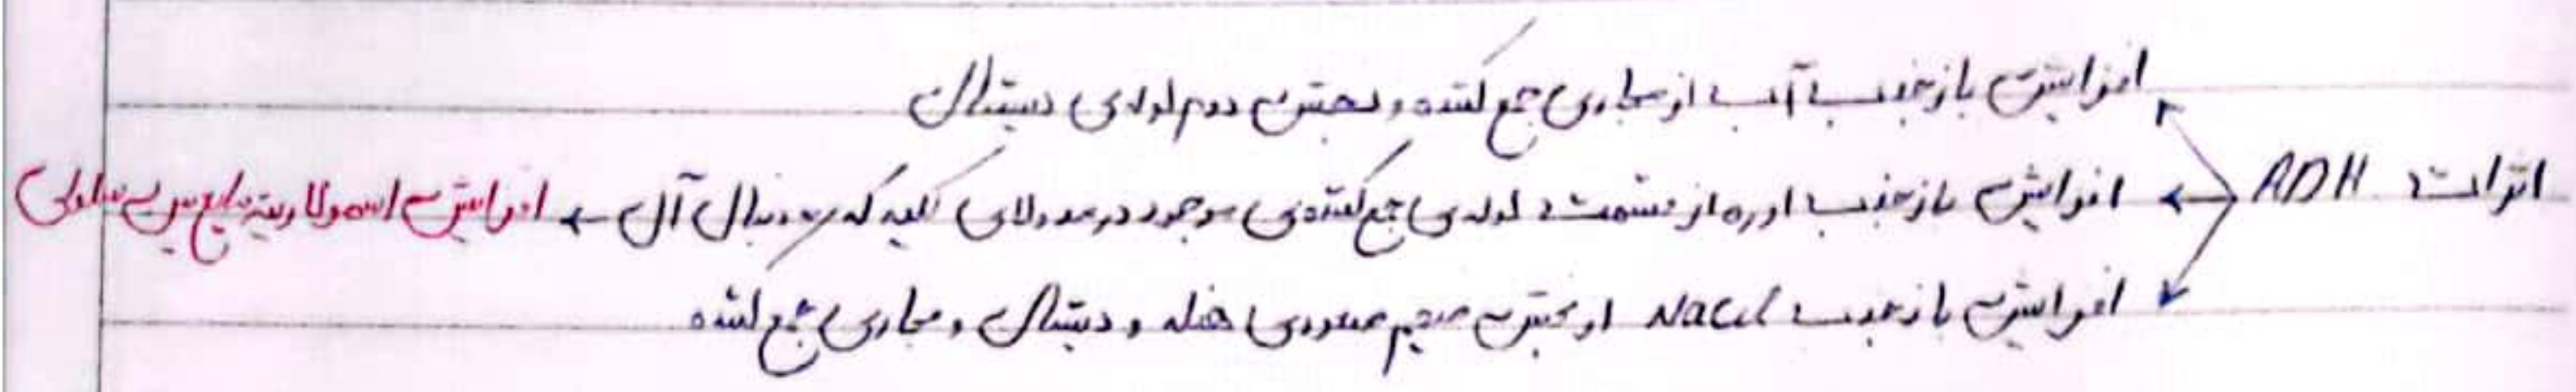 افزایش بازجذب آب از مجاری جمع کننده و بخش دوم لوله‌ی دیستال
اثرات ADH ← افزایش بازجذب اوره از قسمت لوله‌ی جمع کننده‌ی موجود در مدولای کلیه که به دنبال آن ← افزایش اسمولاریته مایع بین سلولی
افزایش بازجذب NaCl از بخش ضخیم صعودی هنله و دیستال و مجاری جمع کننده